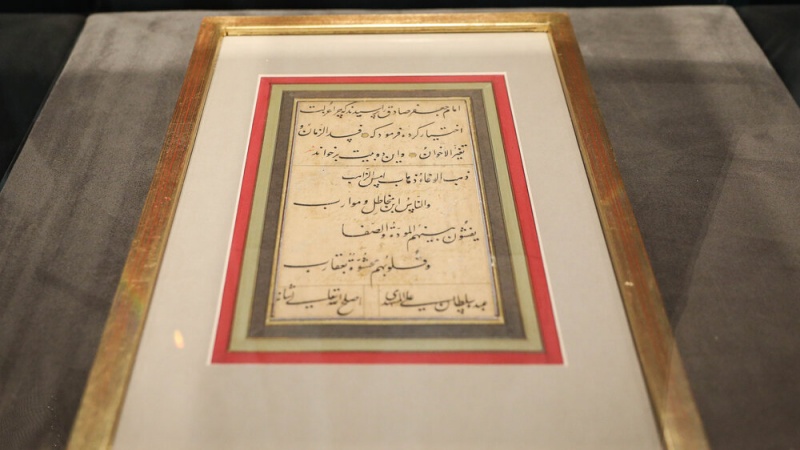 امام جعفر صادق پرسیدند که چرا عزلت
اختیار کرده فرمود که فسد الزمان و
تغیر الاخوان و این دو بیت برخواند
ذهب الوفاء ذهاب امس الذاهب
والناس بین مخاتل و موارب
یفشون بینهم المودة والصفا
و قلوبهم محشوة بعقارب
سلطان علی المشهدی اصلح الله تعالی شانه